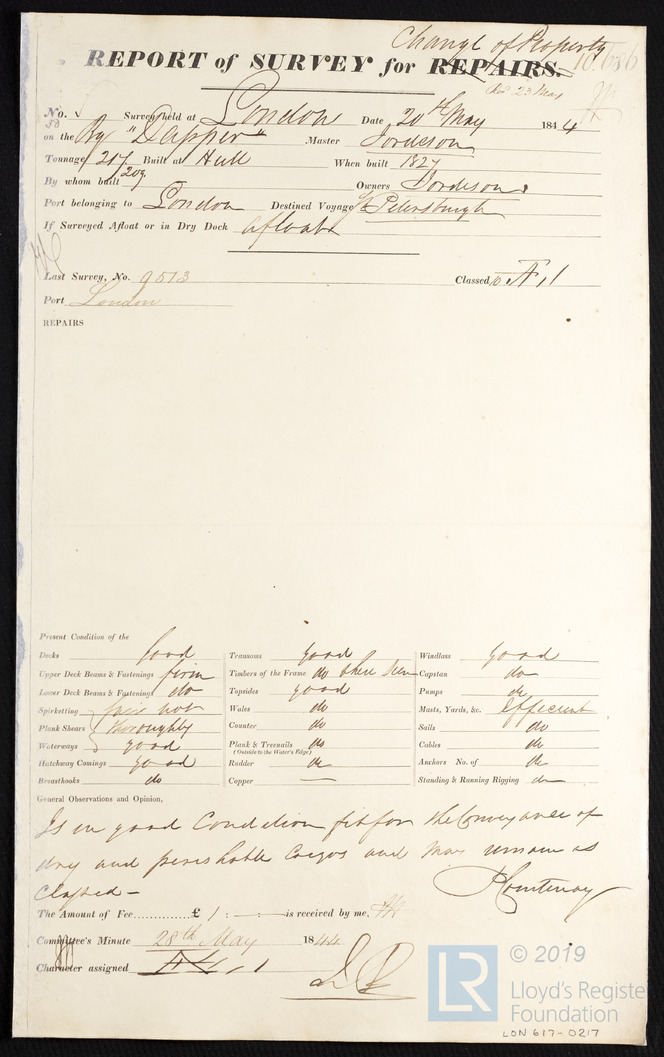 Change of Property
REPORT of SURVEY for REPAIRS. 10.686
Rec 23 May
No. 50 Survey held at London Date 20th May 1844
on the Bg "Dapper" Master Jordeson
Tonnage 217 Built at Hull When built 1827
By whom built 209 Owners Jordeson
Port belonging to London Destined Voyage St Petersburgh
If Surveyed Afloat or in Dry Dock afloat
Last Survey, No. 9513 Classed 10 A, 1
Port London
REPAIRS
Present Condition of the
Decks good Transoms good Windlass good
Upper Deck Beams & Fastenings firm Timbers of the Frame do where seen Capstan do
Lower Deck Beams & Fastenings do Topsides good Pumps do
Spirketting Wales do Masts, Yards, &c. Efficient
Plank Shears thoroughly Counter do Sails do
Waterways good Plank & Treenails do Cables do
(Outside to the Water's Edge)
Hatchway Comings good Rudder do Anchors No. of do
Breasthooks do Copper — Standing & Running Rigging do
General Observations and Opinion,
Is in good Condition fit for the Conveyance of
dry and perishable Cargos and may remain as
Classed —
P Courtenay
The Amount of Fee............£ 1 : - : - is received by me,
Committee's Minute 28th May 1844
Character assigned A 1
© 2019
LR Lloyd's Register
Foundation
LON 617-0217